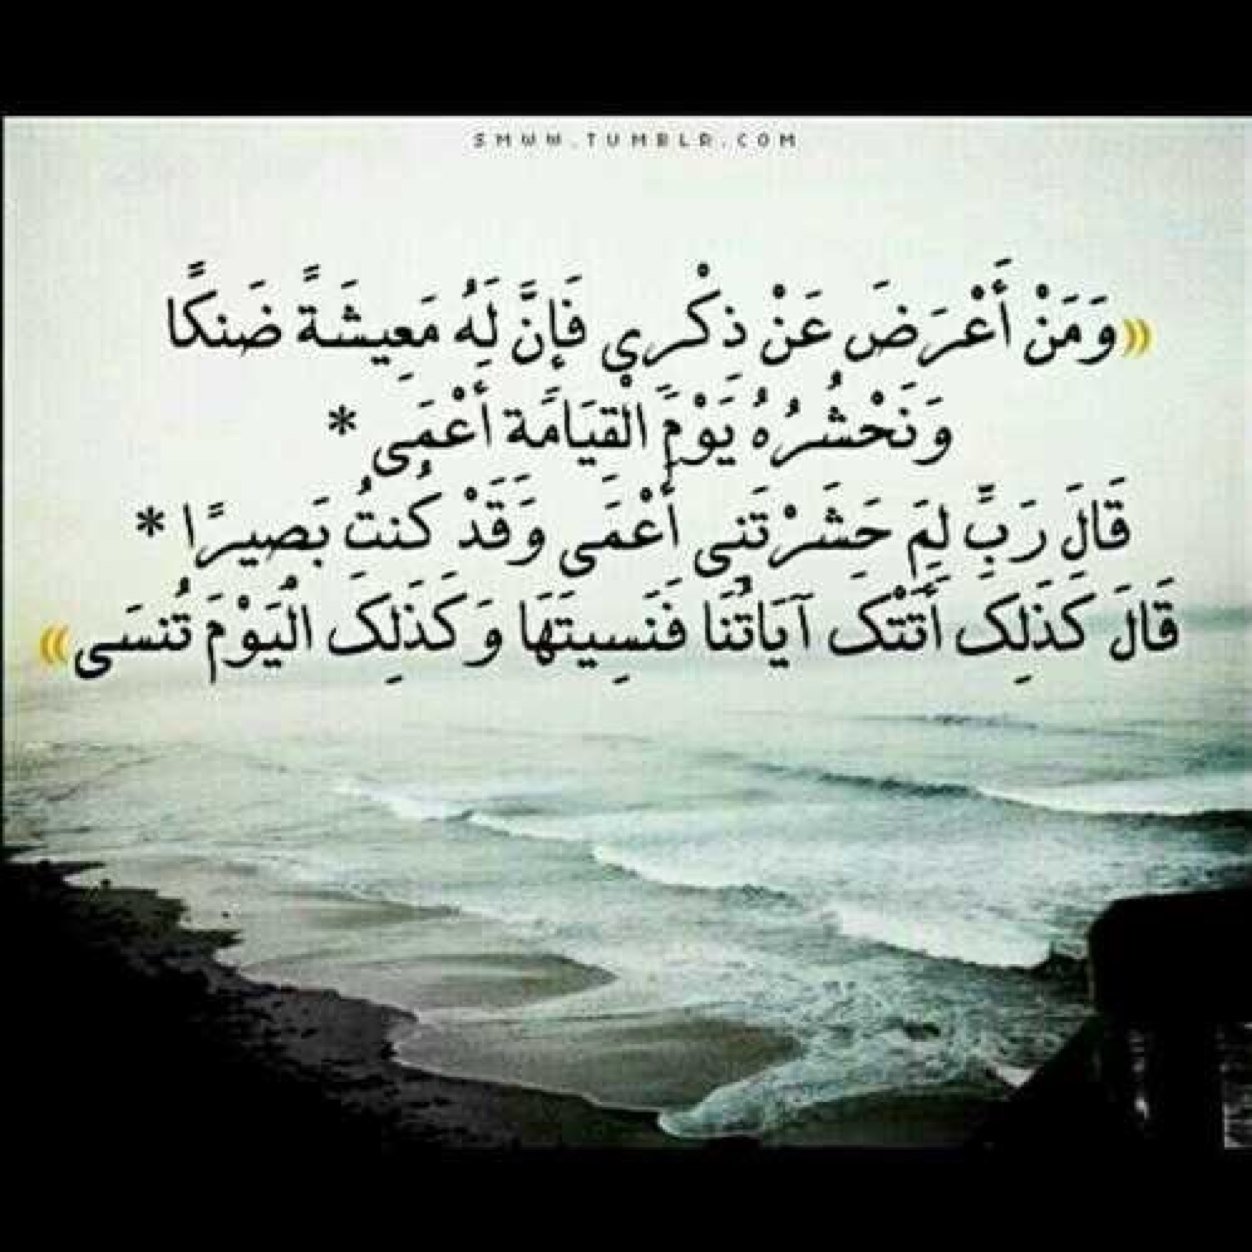 SMWW.TUMBLR.COM
«وَمَنْ أَعْرَضَ عَنْ ذِكْرِي فَإِنَّ لَهُ مَعِيشَةً ضَنكًا
وَنَحْشُرُهُ يَوْمَ الْقِيَامَةِ أَعْمَى *
قَالَ رَبِّ لِمَ حَشَرْتَنِي أَعْمَى وَقَدْ كُنتُ بَصِيرًا *
قَالَ كَذَلِكَ أَتَتْكَ آيَاتُنَا فَنَسِيتَهَا وَكَذَلِكَ الْيَوْمَ تُنسَى»